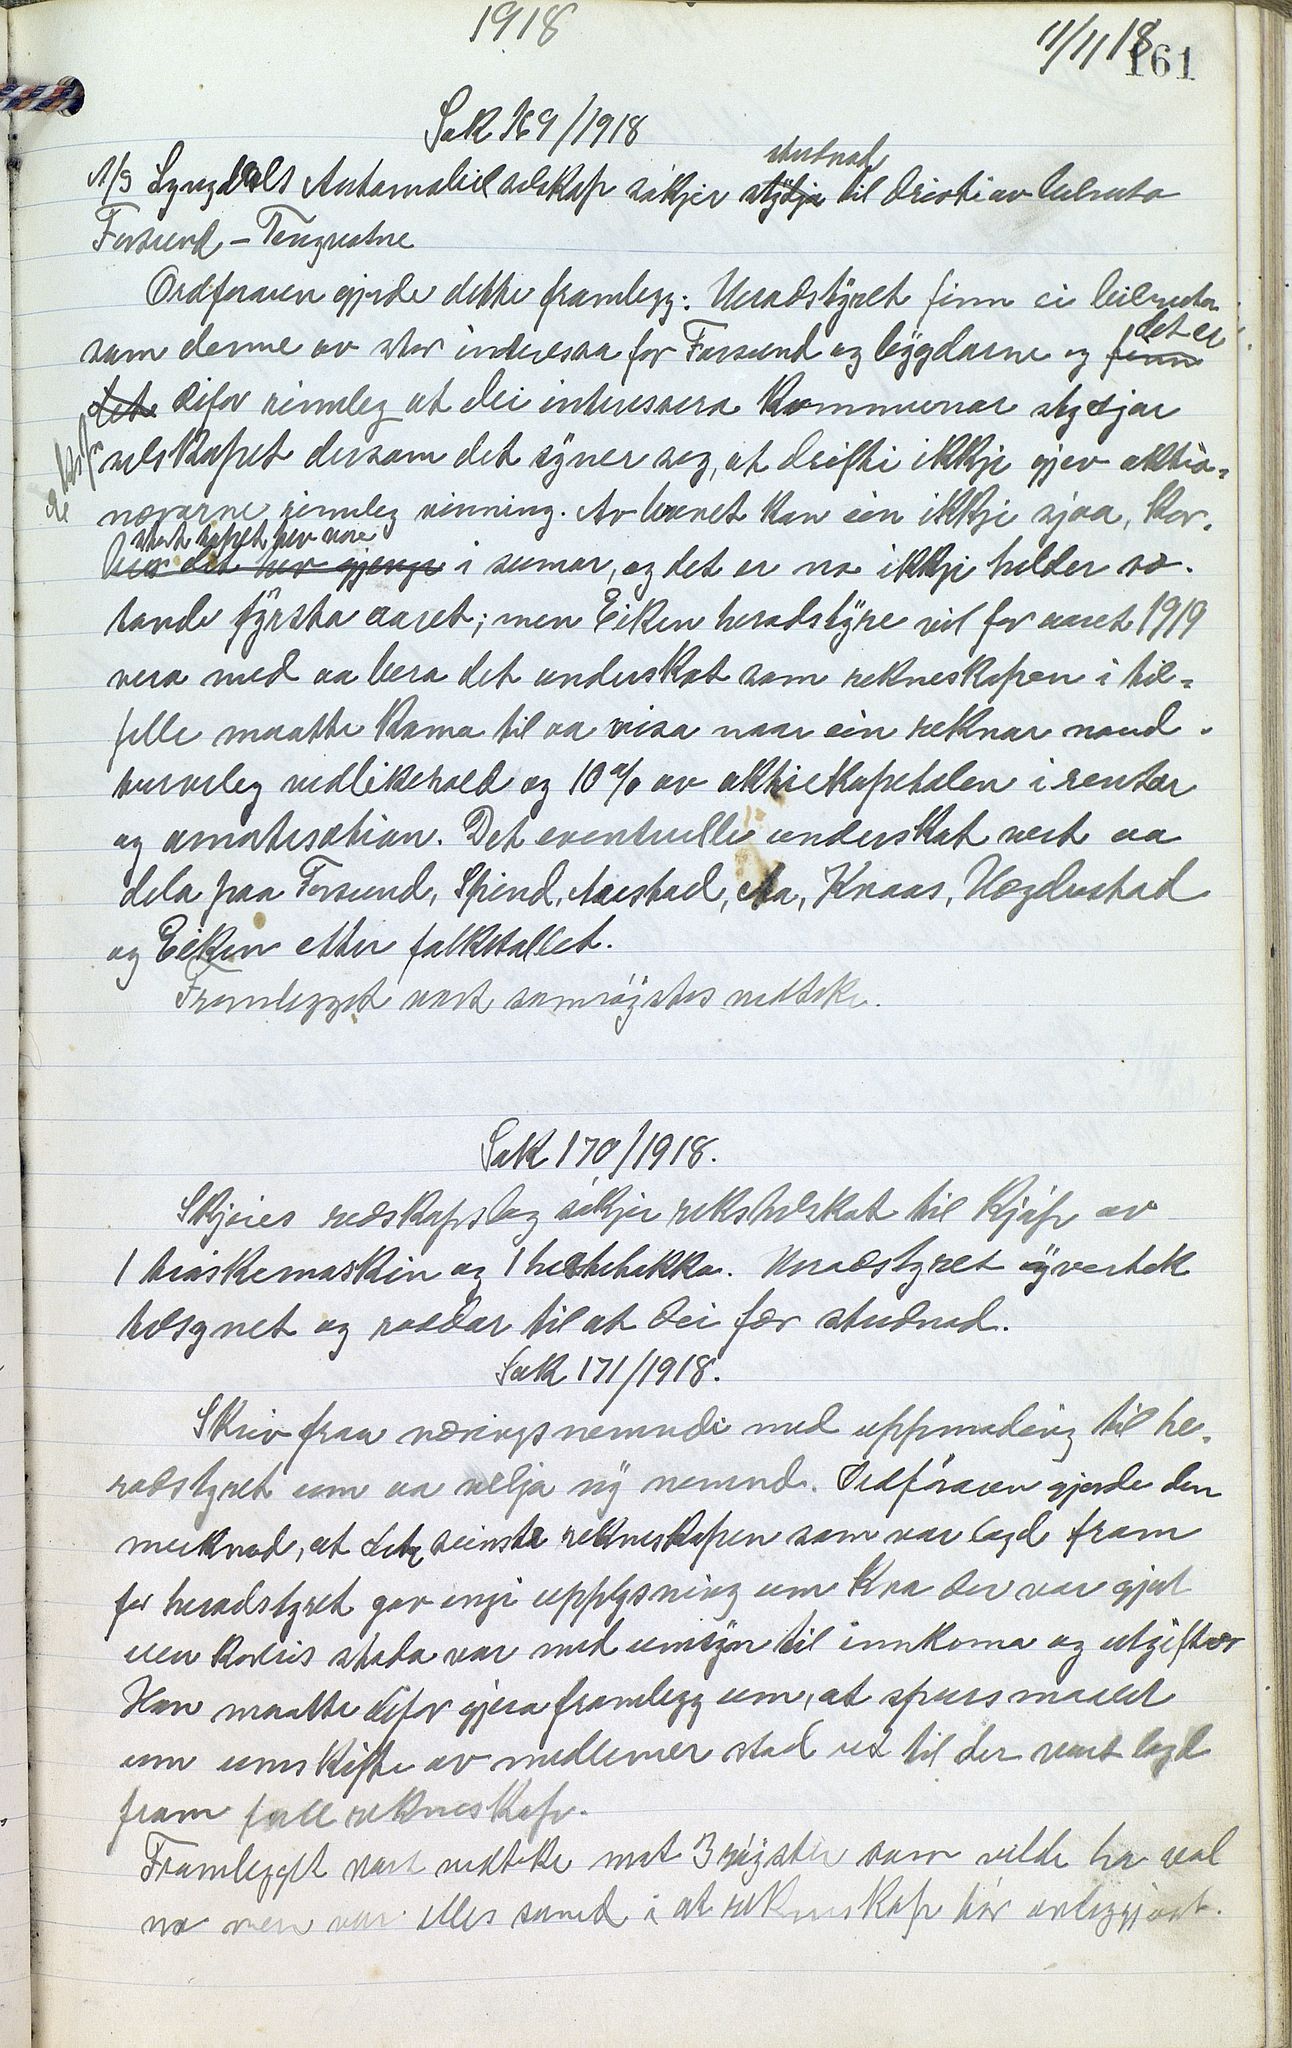 1918
11/11 18
161
Sak 169/1918
A/S Lyngdals Automobilselskap søkjer studnad stydja til drift av bilruta
Farsund – Tonstad
Ordføraren gjorde dette framlegg: Heradstyret finn ei bilruta
som denne av stor interessa for Farsund og bygdarne og finn det er
det difor rimeleg at dei interessera kommunar stydjar
selskapet dersom det syner seg, at drifti ikkje gjev aktiø-
nærarne rimeleg vinning. Av brevet kan ein ikkje sjaa, kor-
leis det hev gjenge i sumar, og det er no ikkje helder so-
tande fyrsta aaret; men Eiken heradstyre vil for aaret 1919
vera med aa bera det underskot som rekneskapen i til-
felle maatte koma til aa visa naar ein reknar naud-
turvleg vedlikehald og 10 % av aktiekapitalen i rentor
og amortisation. Det eventuelle underskot vert aa
dela paa Farsund, Spind, Austad, Aa, Kvaas, Hægebostad
og Eiken etter folketallet.
Framlegget vart samrøystes vedteke.
Sak 170/1918.
Skjeies reidskapslag søkjer rikstilskot til kjøp av
1 treskemaskin og 1 hestehakka. Heradstyret øyvertek
tilsynet og raader til at dei fær studnad.
Sak 171/1918.
Skriv fraa næringsnemndi med uppmoding til he-
radstyret um aa velja ny nemnd. Ordføraren gjorde den
merknad, at det seinste rekneskapen som var lagd fram
for heradstyret gav ingi upplysning um kva der var gjort
eller korleis stoda var med umsyn til innkoma og utgiftor
Han maatte difor gjera framlegg um, at spursmaalet
um umskifte av medlemer stod ut til der vart lagd
fram full rekneskap.
Framlegget vart vedteke mot 3 røyster som vilde ha val
no men var elles samd i at rekneskap bør avleggjast.